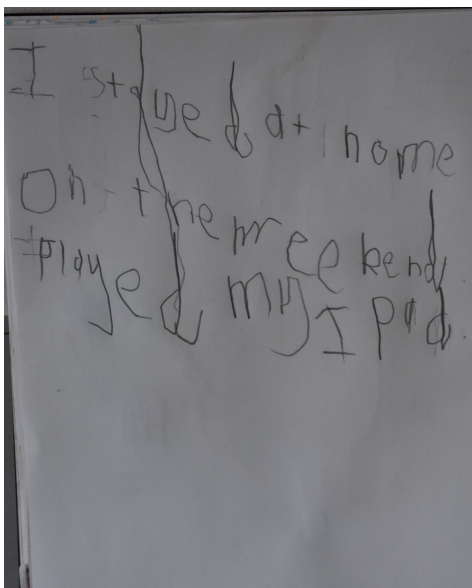 I stayed at home
On the weekend
I played my I pad.